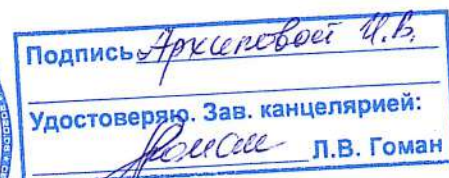 Подпись Архиповой И.В.
Удостоверяю. Зав. канцелярией:
Гоман Л.В. Гоман